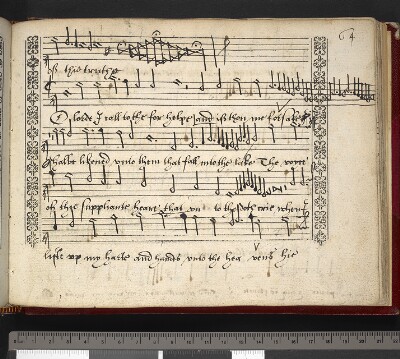 64
of this trinytye
O lorde I call to the for helpe and if thou me forsake
I shalbe likened unto them that fall into the lake The voyce
of thye suppliante heare that un to the doth crie when I
lifte up my harte and handes unto the hea vens hie